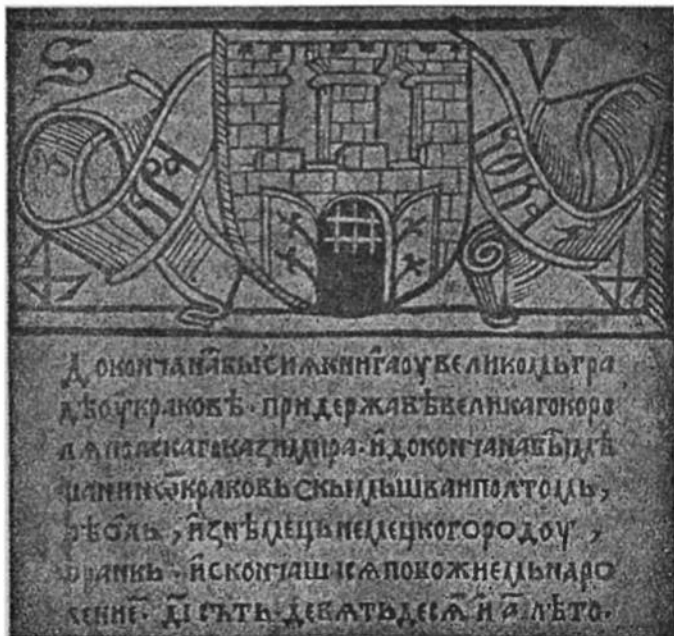 S V
кра кова
Докончана бы̑сиѧ книга оу великомь гра
дѣ оу краковѣ · при державѣ великаго коро
лѧ полскаго казимира · и докончана бы̑ мѣ
щанинѡ̑ краковьскымь шваиполтомь,
фѣѡль, из нѣмець немецкого родоу,
франкь · и скончашасѧ по божиемь наро
жение̑ · д҃і сътъ · девѧтьдесѧ̑ и а҃ лѣто ·